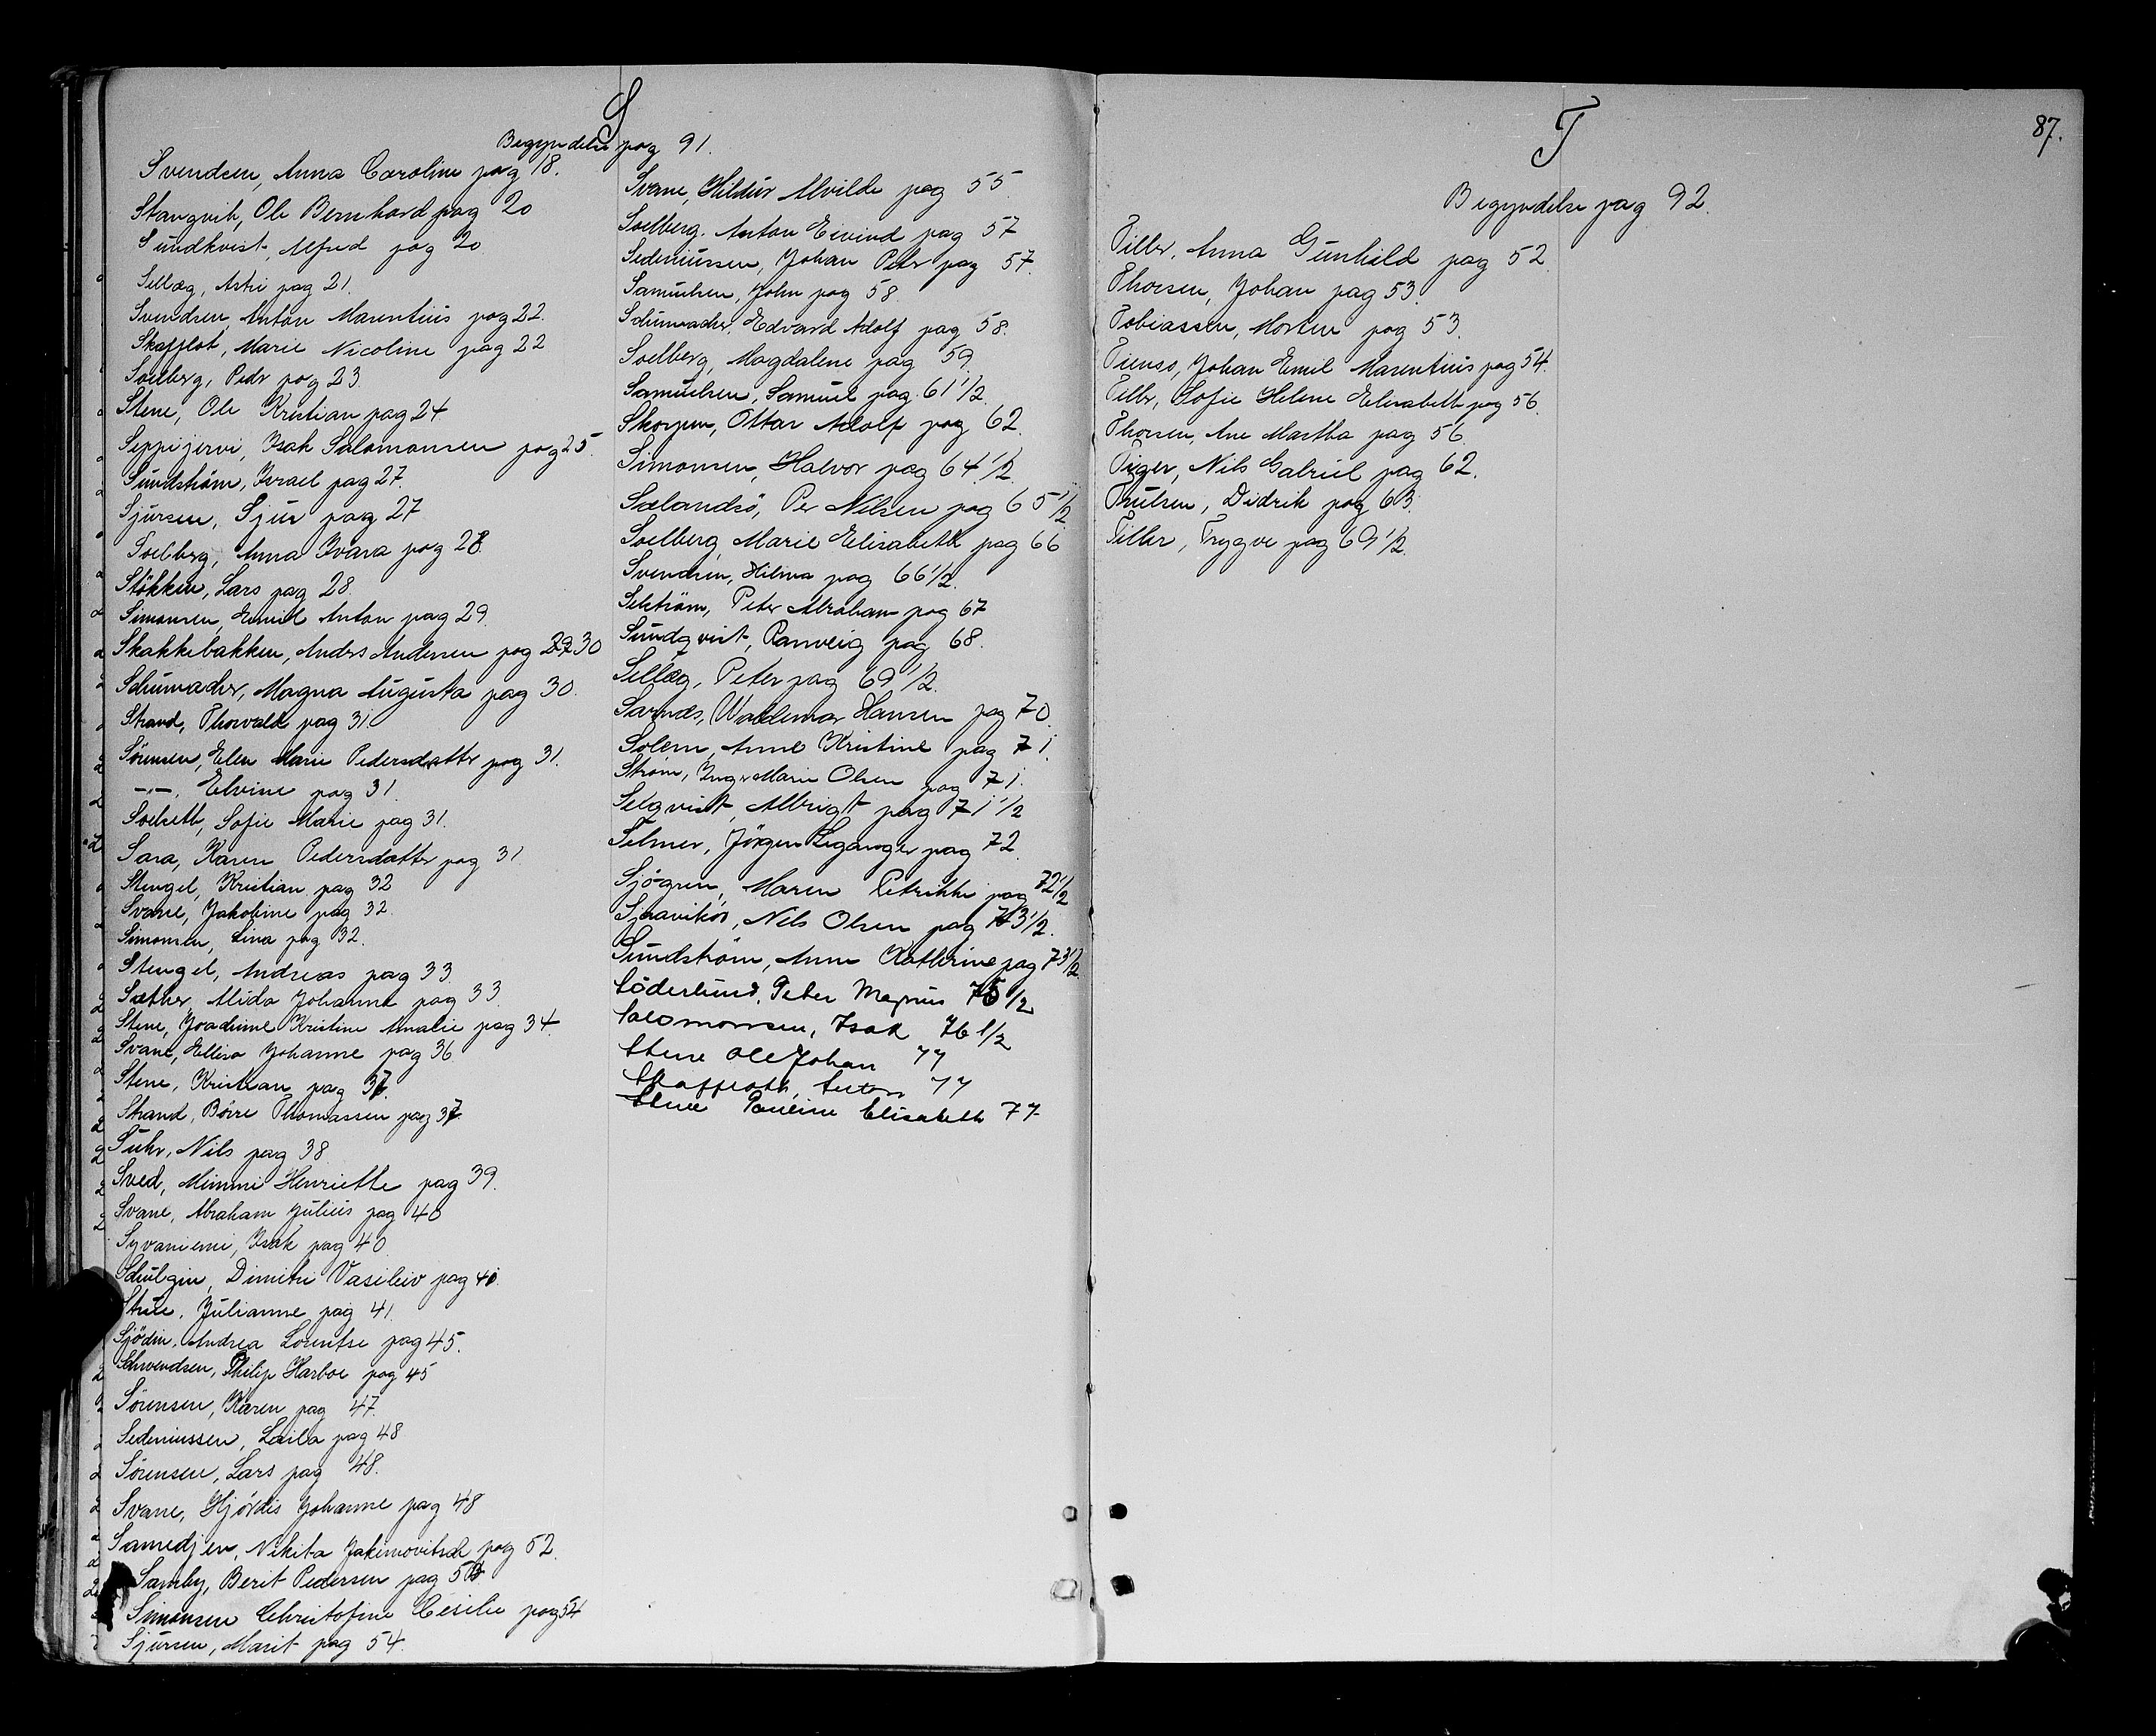 S
Begyndelse pag 91.
Svendsen, Anna Caroline pag 18.
Stangvik, Ole Bernhard pag 20
Sundkvist, Alfred pag 20
Sellæg, Astri pag 21.
Svendsen, Anton Marentius pag 22.
Skafflot, Marie Nicoline pag 22
Soelberg, Peder pag 23.
Stene, Ole Kristian pag 24
Seppijervi, Isak Salomonsen pag 25.
Sundstrøm, Israel pag 27.
Sjursen, Sjur pag 27
Soelberg, Anna Ivara pag 28.
Støkken, Lars pag 28.
Simonsen, Emil Anton pag 29.
Skakkebakken, Anders Andersen pag 29 30
Schumacher, Magna Augusta pag 30.
Strand, Thorvald pag 31
Sørensen, Elen Marie Pedersdatter pag 31.
-"-. Elvine pag 31
Soelseth, Sofie Marie pag 31.
Sara, Karen Pedersdatter pag 31
Stengel, Kristian pag 32
Svane, Jakobine pag 32.
Simonsen, Lina pag 32.
Stengel, Andreas pag 33.
Sæther, Alida Johanne pag 33
Stene, Joachime Kristine Amalie pag 34
Svane, Ellisa Johanne pag 36
Stene, Kristian pag 37.
Strand, Börre Thomassen pag 37
Suhr, Nils pag 38
Sved, Mimmi Henriette pag 39.
Svane, Abraham Julius pag 40
Syvaniemi, Isak pag 40
Schulgin, Dimitri Vasiliiv pag 40.
Strie, Julianne pag 41.
Sjödin, Andrea Lorentse pag 45.
Schwendsen, Philip Harboe pag 45
Sørensen, Karen pag 47.
Sedeniussen, Laila pag 48
Sørensen, Lars pag 48.
Svane, Hjørdis Johanne pag 48
Samedjen, Nikita Jakimovitsch pag 52.
Samby, Berit Pedersen pag 53
Simonsen Christofine Cesilie pag 54
Sjursen, Marit pag 54.
Svane, Hildur Alvilde pag 55
Soelberg. Anton Eivind pag 57
Sedeniussen, Johan Peter pag 57.
Samuelsen, John pag 58
Schumacher, Edvard Adolf pag 58.
Soelberg, Magdalene pag 59
Samuelsen, Samuel pag. 61 1/2.
Skorpen, Ottar Adolf pag 62.
Simonsen, Halvor pag 64 1/2.
Sælandsö, Per Nilsen pag 65 1/2
Soelberg, Marie Elisabeth pag 66
Svendsen, Hilma pag 66 1/2.
Selström, Peter Abraham pag 67
Sundqvist, Ranveig pag 68.
Sellæg, Peter pag 69 1/2.
Sarnds, Waldemar Hansen pag 70.
Solem, Anne Kristine pag 71.
Strøm, Inger Marie Olsen pag 71.
Selqvist, Albrigt pag 71 1/2
Selmer, Jörgen Leganger pag 72
Sjögren, Maren Petrikke pag 72 1/2
Sjaavikör, Nils Olsen pag 73 1/2.
Sundström, Anne Kathrine pag 73 1/2.
Söderlund, Peter Magnus 75 1/2
Salomonsen, Isak 76 1/2
Stene Ole Johan 77
Skaffloth, Anton 77
Stene Pauline Elisabeth 77
T
87.
Begyndelse pag 92.
Tiller, Anna Gunhild pag 52
Thorsen, Johan pag 53.
Tobiassen, Morten pag 53.
Tienso, Johan Emil Marentius pag 54.
Tiller, Sofie Helene Elisabeth pag 56.
Thorsen, Ane Martha pag 56
Tiger, Nils Gabriel pag 62.
Trulsen, Didrik pag 63.
Tiller, Trygve pag 69 1/2.